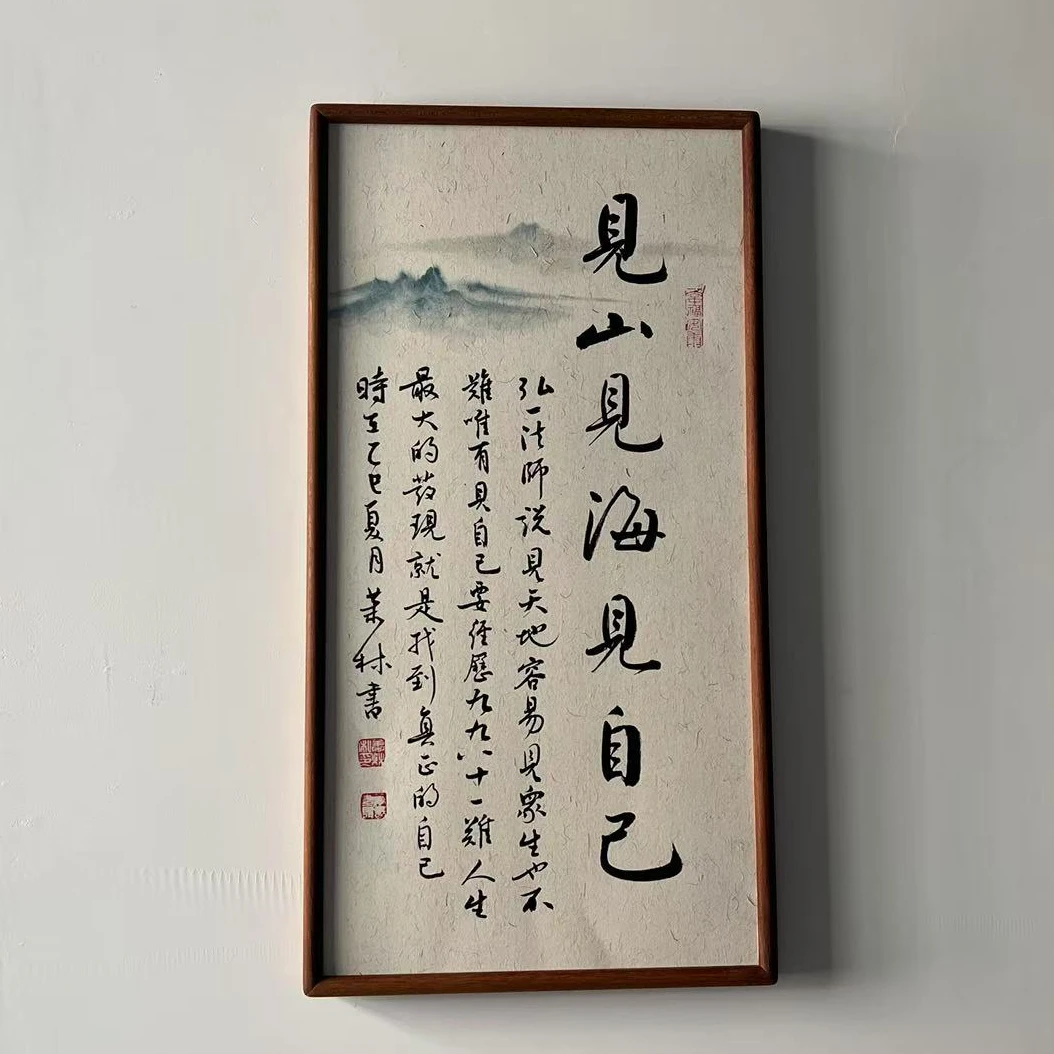 見山見海見自己
弘一法師説見天地容易見衆生也不
難唯有見自己要經歷九九八十一難人生
最大的發現就是找到真正的自己
時在乙巳夏月 林書